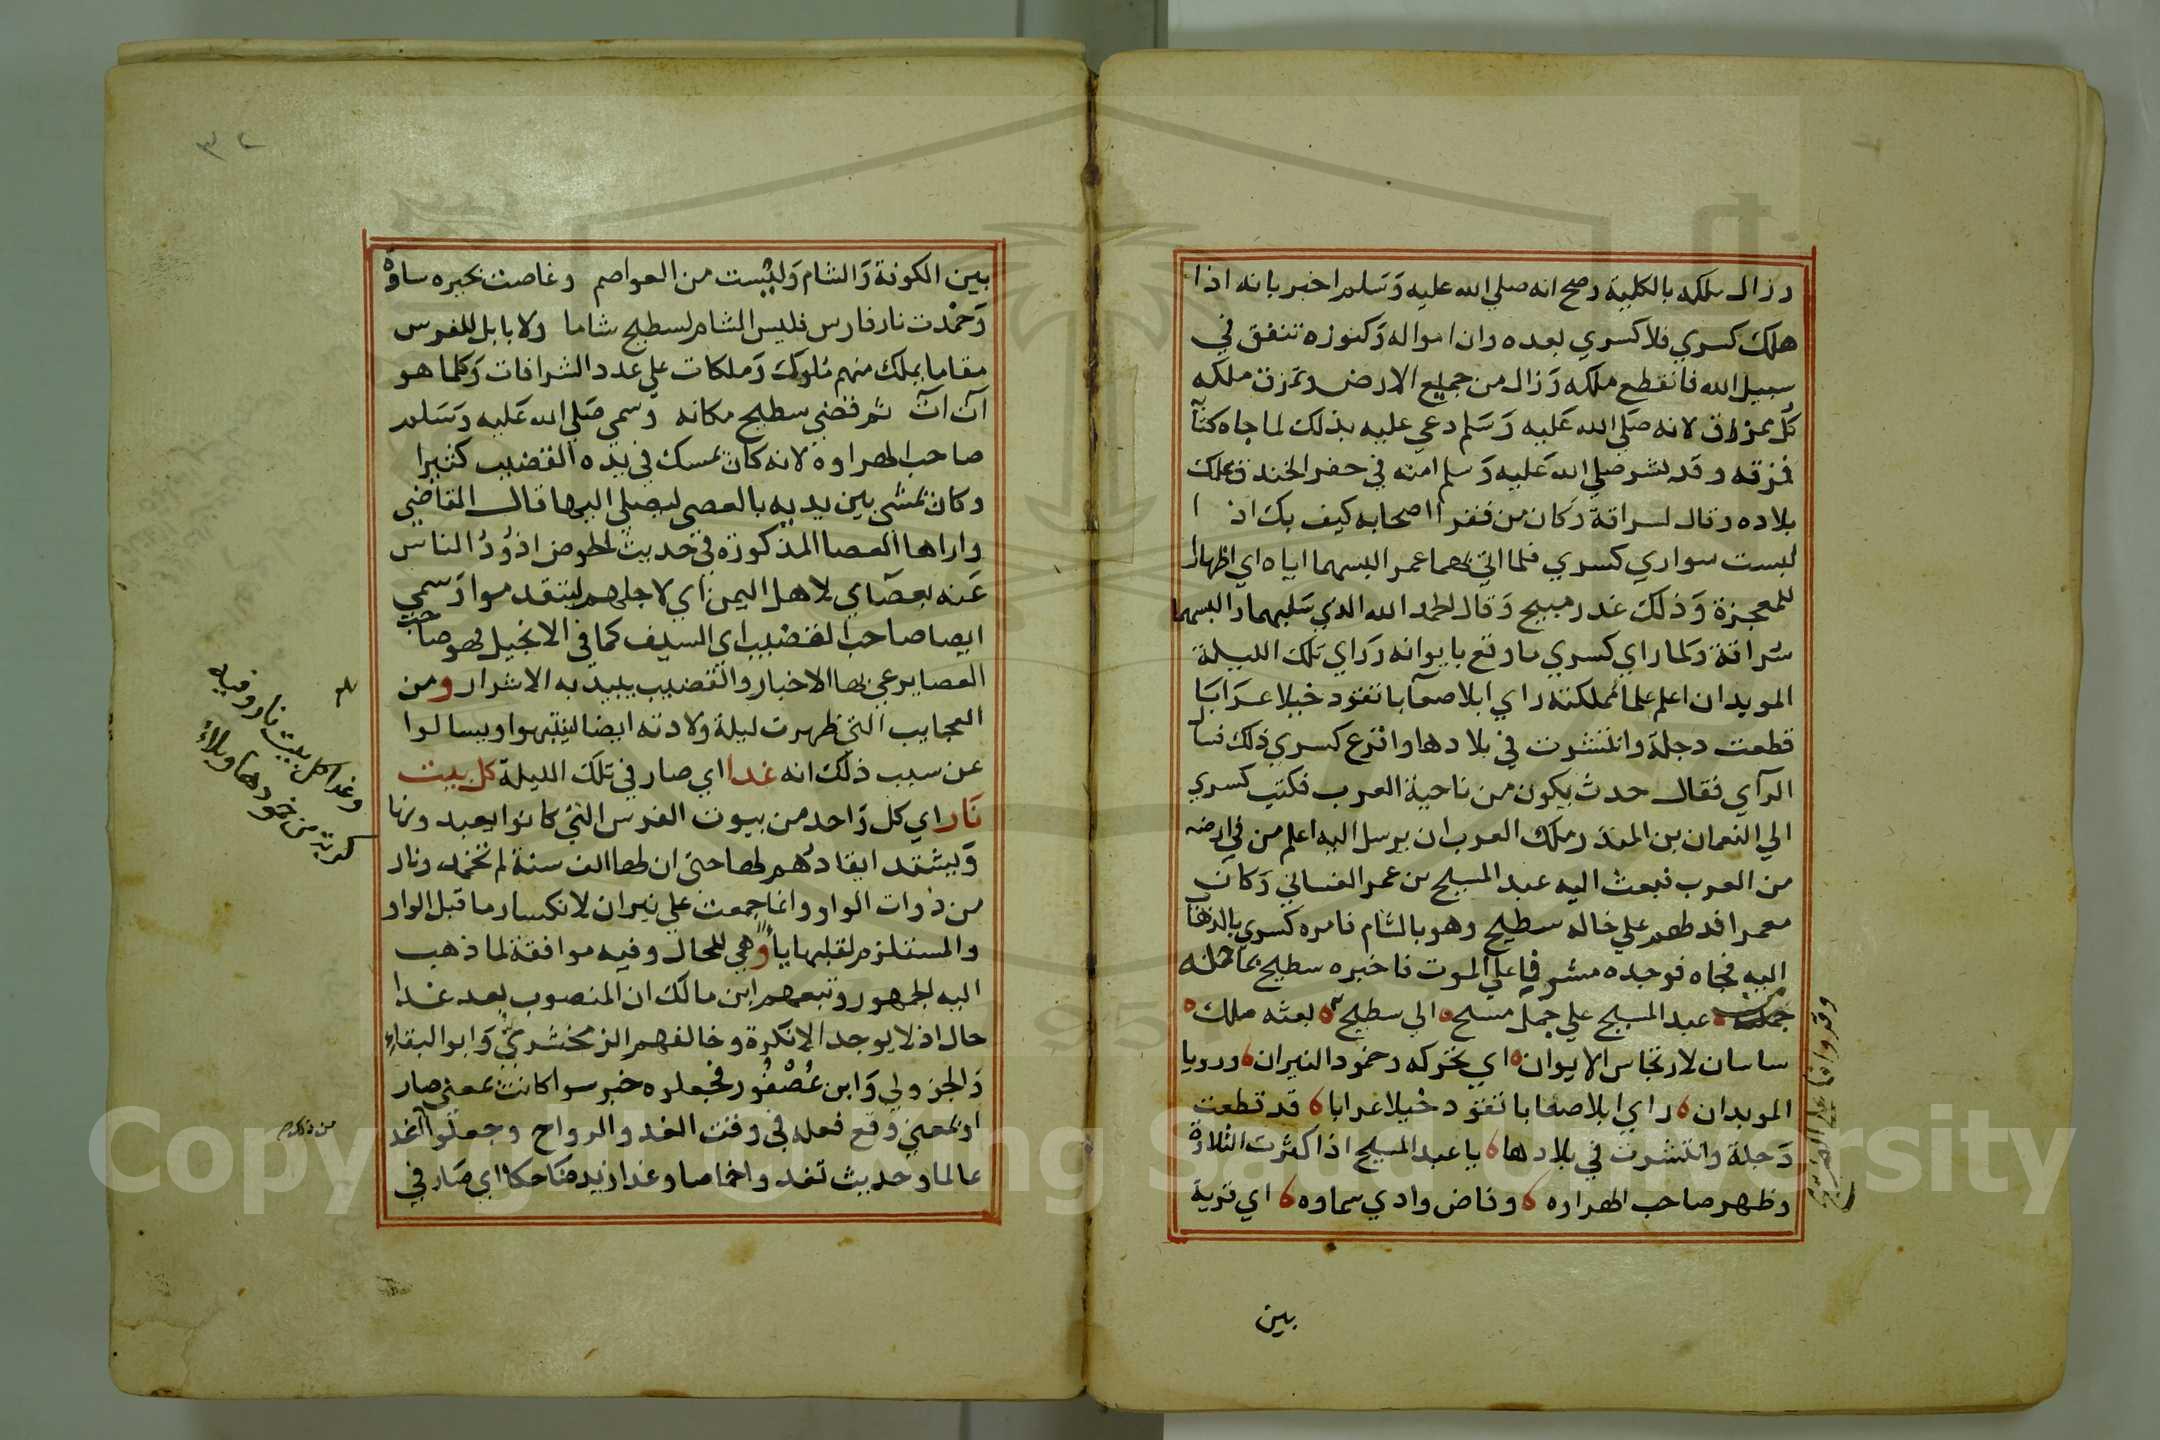 وزال ملكه بالكلية وصح انه صلي الله عليه وَسَلم اخبر بانه اذا
هلك كسري فلا كسري بعده وان امواله وَكنوزه تنفق في
سبيل الله فانقطع ملكه وَزال من جميع الارض وتمزق ملكه
كُل ممزق لانه صَلي الله عَليه وَسَلم دعي عليه بذلك لما جاه كتابه
فمزقه وقد بشر صلي الله عَليه وَسلم امته في حفر الخندق بملك
بلاده وقال لسراقة وَكان من فقرا اصحابه كيف بك اذا
لبست سواري كسري فلما اتي بهما عمر البسهما اياه اي اظهارا
للمعجزة وَذلك عند مبيح وَقال الحمد لله الذي سَلبهما والبسهما
سُراقة وَلما راي كسري ما وقع بايوانه وَراي تلك الليلة
الموبدان اعلم علما مملكته راي ابلا صعابا تقود خيلا عرَابَا
قطعت دجلة وانتشرت في بلادها وافزع كسري ذلك فسال
الرآي فقال حدث يكون من ناحية العرب فكتب كسري
الي النعمان بن المنذر ملك العرب ان يرسل اليه اعلم من في ارضه
من العرب فبعث اليه عبد المسيح بن عمر الغساني وَكان
معمرا فدلهم علي خاله سطيح وهو بالشام فامره كسري بالذهاب
اليه فجاه فوجده مشرفا علي الموت فاخبره سطيح بما
عبد المسيح علي جمل مسيح الي سطيح بعثه ملك
ساسان لارتجاس الايوان اي تحركه وخمود النيران ورويا
الموبدان راي ابلا صعابا تقود خيلا عرابا قد قطعت
دَجلة وانتشرت في بلادها يا عبد المسيح اذا كثرت التلاوة
وظهر صاحب الهراوه وفاض وادي سماوه اي قرية
بين
بين الكوفة وَالشام وَليْست من العواصم وغاضت بحيره ساوة
وَخمدت نار فارس فليس الشام لسطيح شاما ولا بابل للفرس
مقاما يملك منهم مُلوك وَملكات علي عدد الشرافات وَكلما هو
آت آت ثم قضي سطيح مكانه وسمي صَلي الله عَليه وَسَلم
صاحب الهراوه لانه كان يمسك في يَده القضيب كثيرا
وكان يمشي بين يديه بالعصي ليصلي اليها قال القاضي
واراها العصا المذكورة في حَديث الحوض اذوُدُ الناس
عَنه بعصَاي لاهل اليمن اي لاجلهم ليتقدموا وَسمي
ايضا صاحب القضيب اي السيف كما في الانجيل فهو صاحب
العصا يرعي بها الاخيار والقضيب يبيد به الاشرار ومن
العجايب التي ظهرت ليلة ولادته ايضا لينتبهوا ويسالوا
عن سبب ذلك انه غدا اي صار في تلك الليلة كل بيت
نَار اي كل وَاحد من بيوت الفرس التي كانوا يعبدونها
وَيشتد ايقادهم لها حتي ان لها الف سنة لم تخمد ونار
من ذوات الواو وانما جمعت علي نيران لانكسار ما قبل الواو
والمستلزم لقلبها ياً وَهي للحال وفيه موافقة لما ذهب
اليه الجمهور وتبعهم ابن مالك ان المنصوب بعد غدا
حال اذ لا يوجد الا نكرة وخالفهم الزمخشري وَابو البقاء
وَالجزولي وَابن عُصْفُور فجعلوه خبر سوا كانت بمعني صار
او بمعني وقع فعله في وقت الغد والرواح وجعلوا اغد
عالما وحديث تغدوا خماصا وغدا زيد ضَاحكا اي صَار في
وغدا كل بيت نار وفيه
كربة من خمودها وبلاء